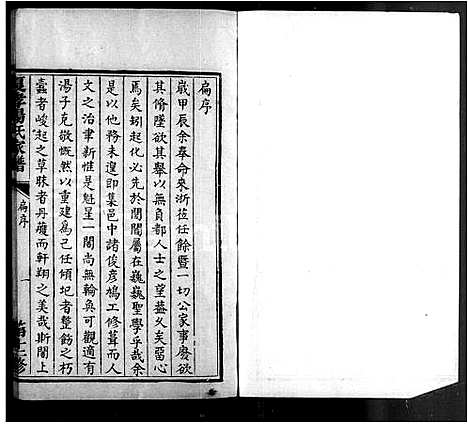 扁序
歲甲辰余奉命來浙蒞任餘暨一切公家事靡欲
其脩墜欲其舉以無負都人士之望蓋久矣留心
焉矣矧起化必先於閭閻屬在巍巍聖學乎哉余
是以他務未遑即集邑中諸俊彥鳩工修葺而人
文之治聿新惟是魁星一閣尚無輪奐可觀適有
湯子克敬慨然以重建爲己任傾圮者整飭之朽
蠹者峻起之草昧者丹雘而軒翔之美哉斯閣上
湯氏家譜
扁序
一